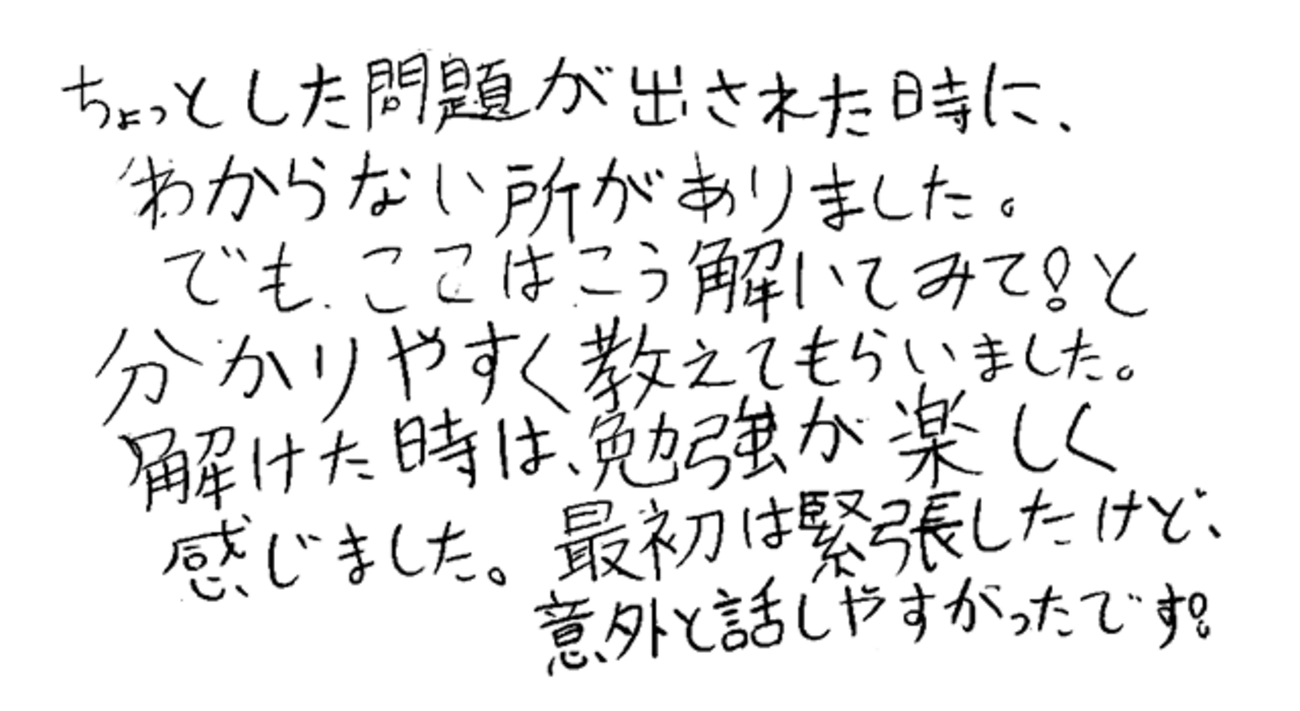 ちょっとした問題が出された時に、
わからない所がありました。
でも、ここはこう解いてみて!と
分かりやすく教えてもらいました。
解けた時は、勉強が楽しく
感じました。最初は緊張したけど、
意外と話しやすがったです!